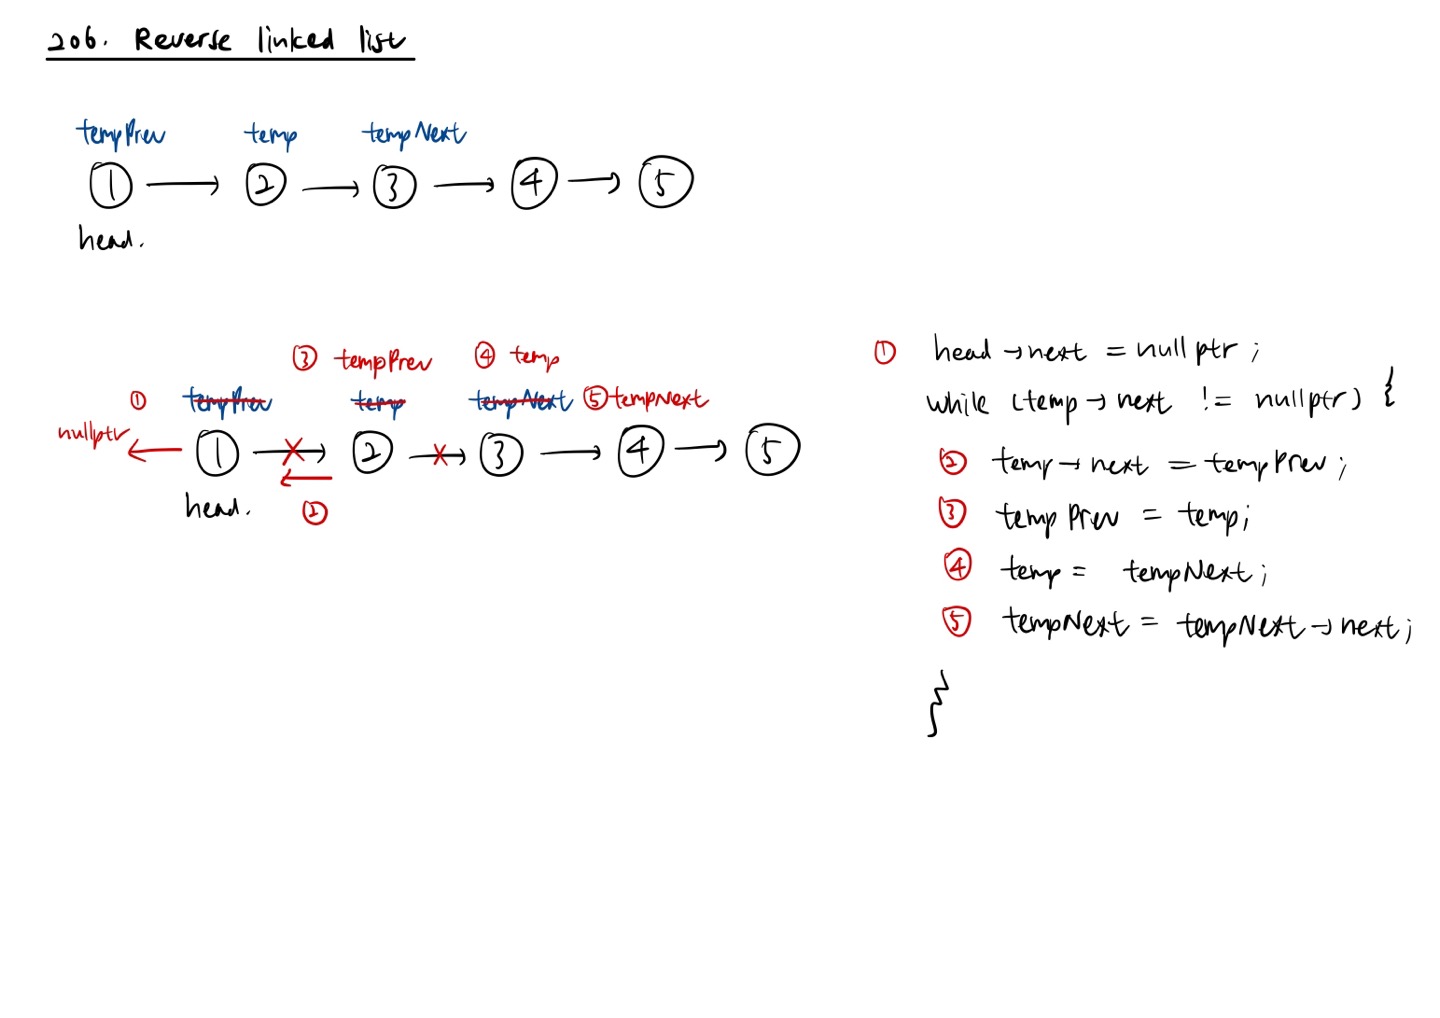 206. Reverse linked list
tempPrev temp tempNext
1 → 2 → 3 → 4 → 5
head.
③ tempPrev ④ temp
① tempPrev temp tempNext ⑤ tempNext
nullptr
1 → 2 → 3 → 4 → 5
head. ②
① head → next = nullptr;
while (temp → next != nullptr) {
② temp → next = tempPrev;
③ tempPrev = temp;
④ temp = tempNext;
⑤ tempNext = tempNext → next;
}